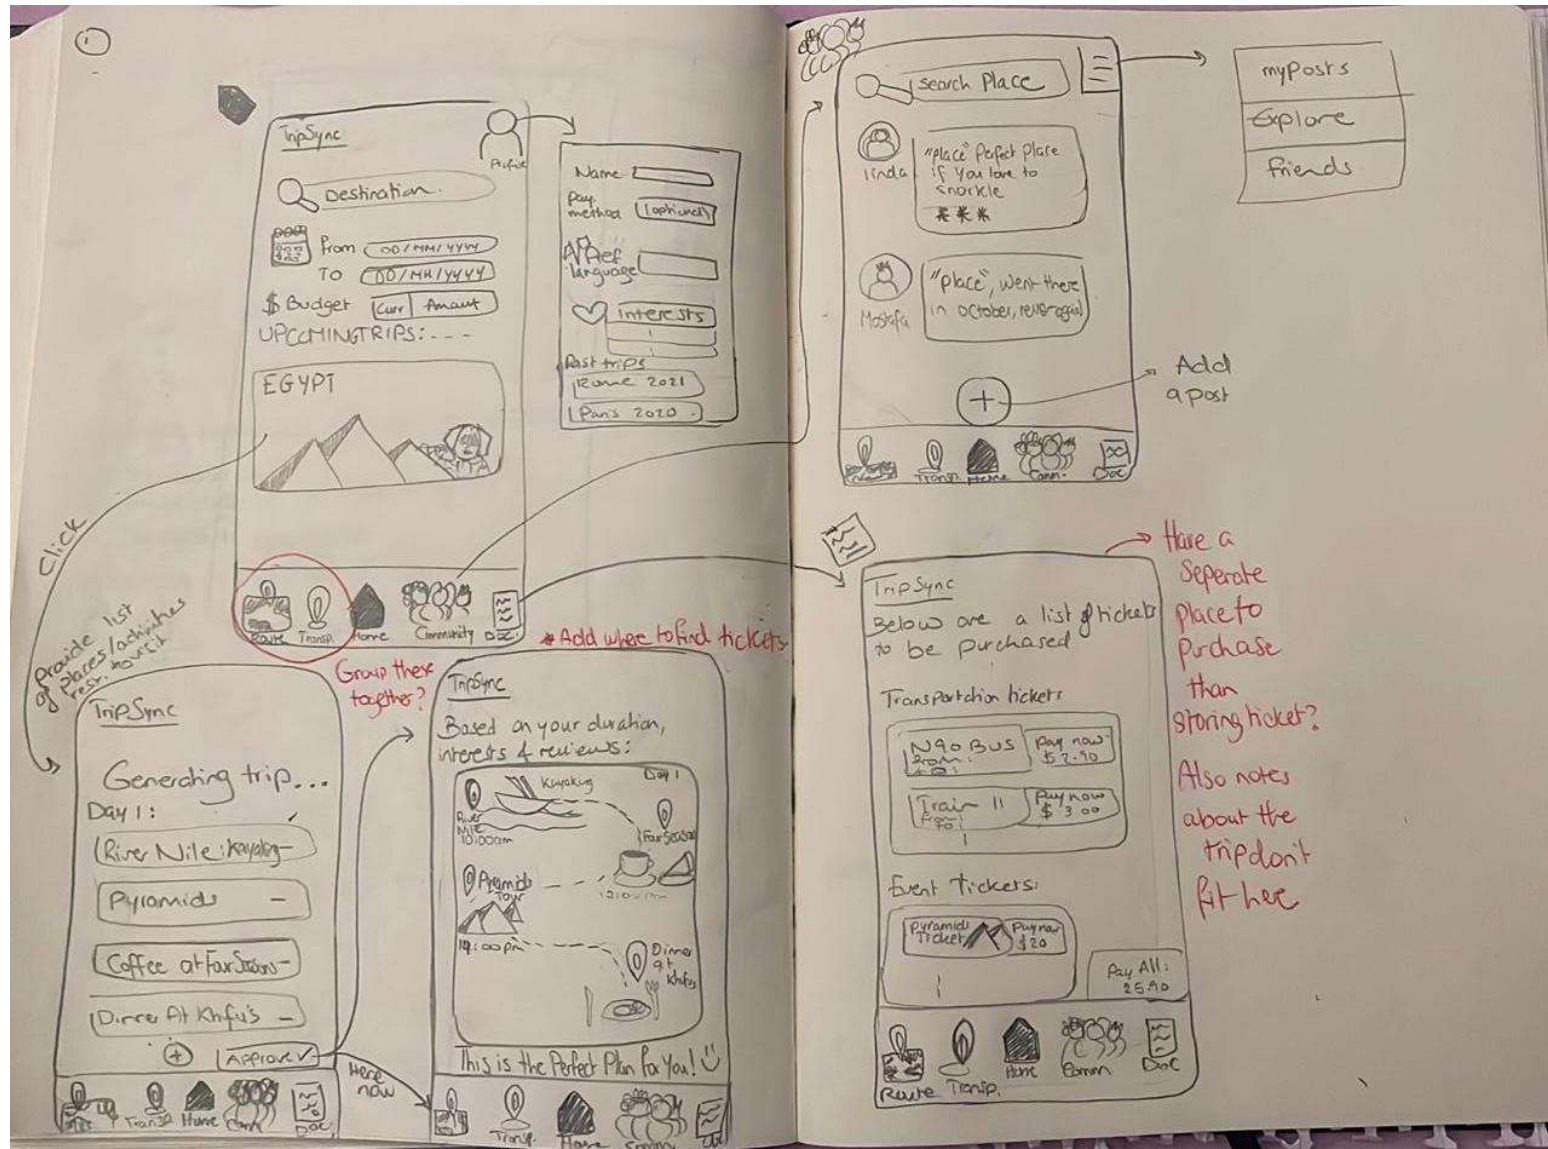 1
TripSync
Profile
Destination.
From DD/MM/YYYY
To DD/MM/YYYY
$ Budget Curr Amount
UPCOMINGTRIPS: - - -
EGYPT
Route Transp. Home Community Doc.
Name
Pay.
method (optional)
Pref
language
interests
Past trips
Rome 2021
Paris 2020
Click
provide list
of places/activities
rest. to visit
Group these
together?
TripSync
Generating trip...
Day 1:
River Nile: Kayaking -
Pyramids -
Coffee at Four Seasons -
Dinner At Khfu's -
+ Approve ✓
Transp Home Comm Doc.
Here
now
* Add where to find tickets
TripSync
Based on your duration,
interests & reviews:
Day 1
Kayaking
River
Nile
10:00am
Four Seasons
Pyramids
Tour
Dinner
at
Khfu's
This is the Perfect Plan for You!
Transp. Home Comm Doc
search Place
linda
"place" Perfect place
if you love to
snorkle
Mostafa
"place", went there
in october,
+
Add
a post
Transp. Home Comm. Doc
myPosts
Explore
friends
TripSync
Below are a list of tickets
to be purchased
Transportation tickets
N90 BUS
From:
To:
Pay now
$2.90
Train 11
From:
To:
Pay now
$3.00
Event Tickets:
Pyramids
Ticket
Pay now
$20
Pay All:
25.90
Route Transp. Home Comm Doc
Have a
Seperate
place to
purchase
than
storing ticket?
Also notes
about the
trip don't
fit here